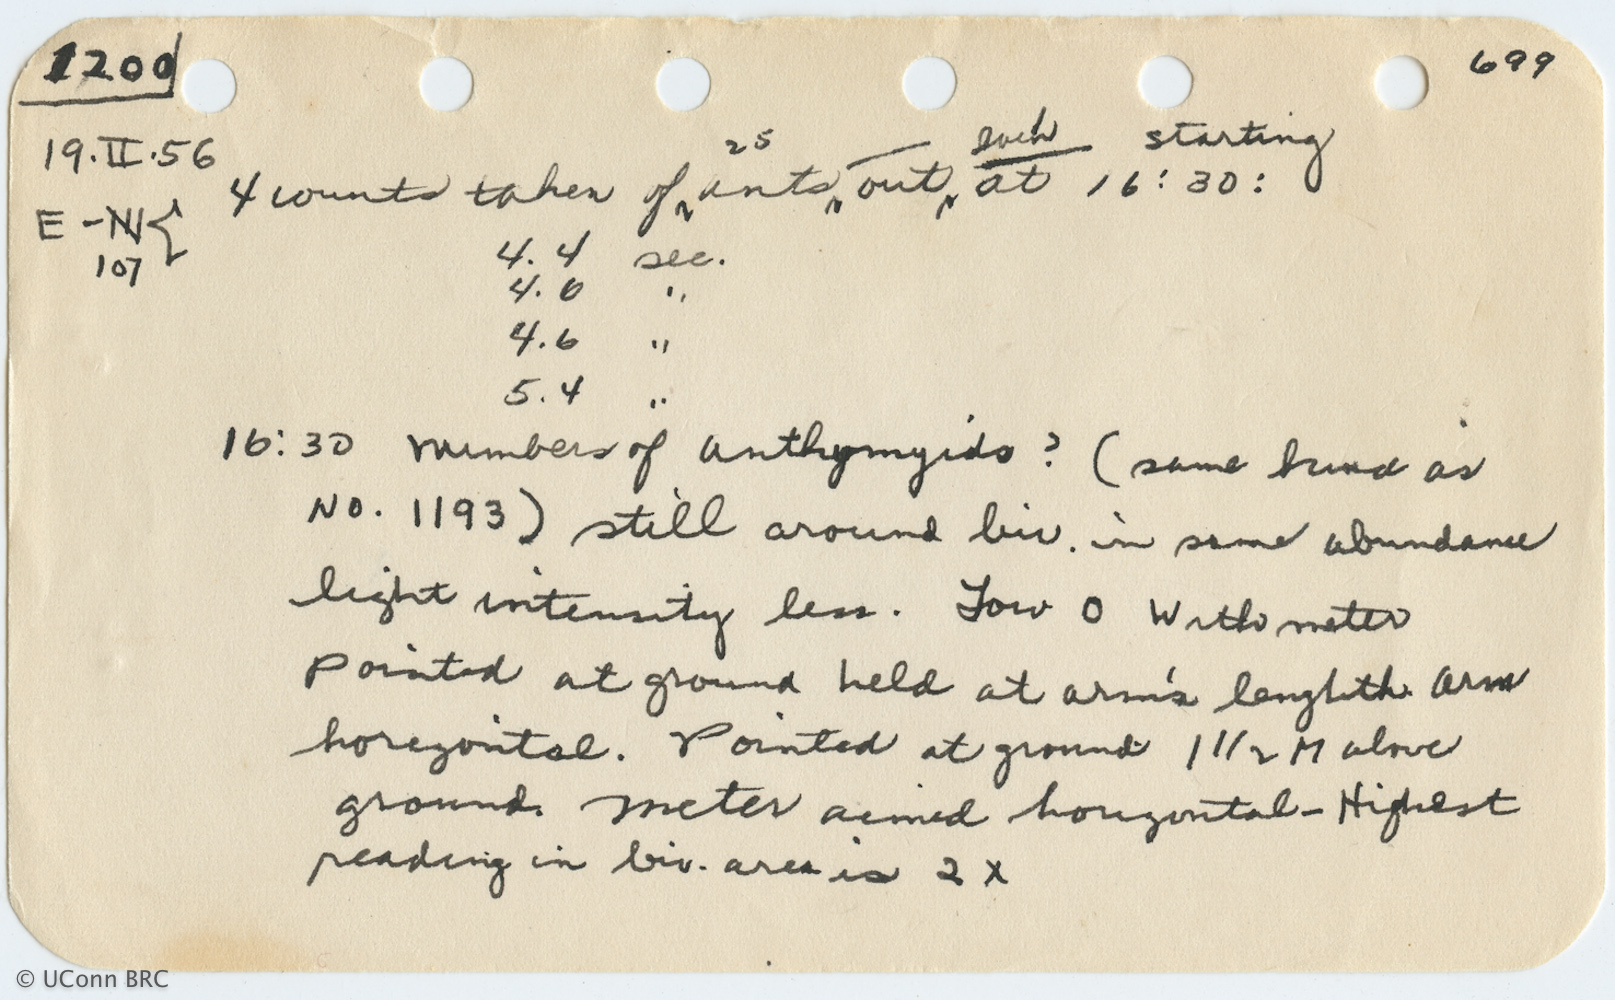 1200
699
19.II.56
E-N
107
25 each starting
4 counts taken of ants out at 16:30:
4.4 sec.
4.0 "
4.6 "
5.4 "
16:30 numbers of anthymyids? (same kind as
No. 1193) still around biv. in same abundance
light intensity less. Low 0 With meter
Pointed at ground held at arm's lenghth. Arm
horezontal. Pointed at ground 1 1/2 M above
ground. Meter aimed horizontal - Highest
reading in biv. area is 2 X
© UConn BRC